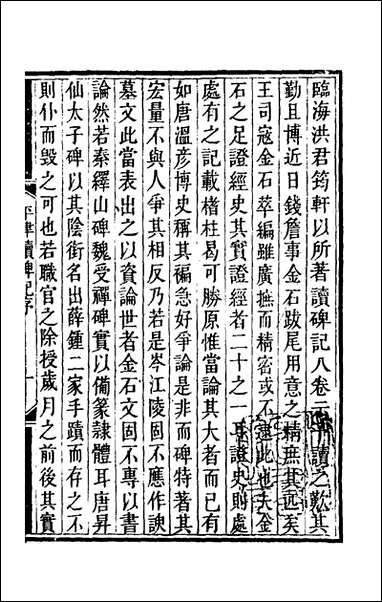 臨海洪君筠軒以所著讀碑記八卷
讀之歎其
勤且博近日錢詹事金石跋尾用意之精庶其近矣
王司寇金石萃編雖廣撫而精密或不逮此也夫金
石之足證經史其實證經者二十之一耳證史則處
處有之記載楮柱曷可勝原惟當論其大者而已有
如唐溫彥博史稱其褊急好爭論是非而碑特著其
宏量不與人爭其相反乃若是岑江陵固不應作諛
墓文此當表出之以資論世者金石文固不專以書
論然若秦繹山碑魏受禪碑實以備篆隸體耳唐昇
仙太子碑以其陰銜名出薛鍾二家手蹟而存之不
則仆而毀之可也若職官之除授歲月之前後其實
平津讀碑記序
一